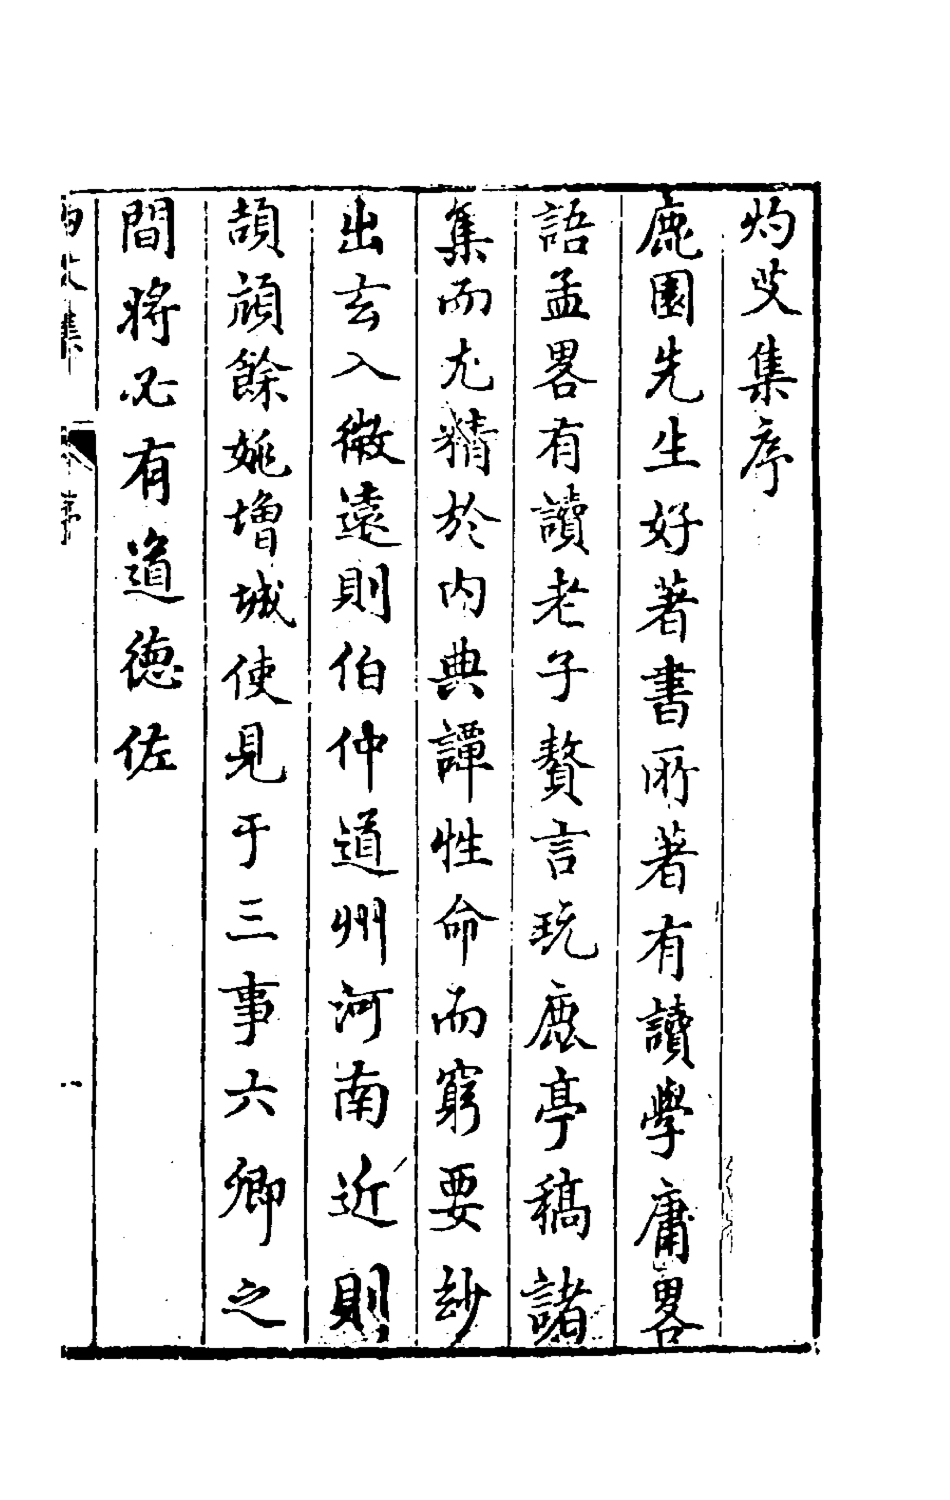 灼艾集序
鹿園先生好著書所著有讀學庸畧
語孟畧有讀老子贅言玩鹿亭稿諸
集而尤精於内典譚性命而窮要玅
出玄入微遠則伯仲道州河南近則
頡頏餘姚增城使見于三事六卿之
間將必有道德佐